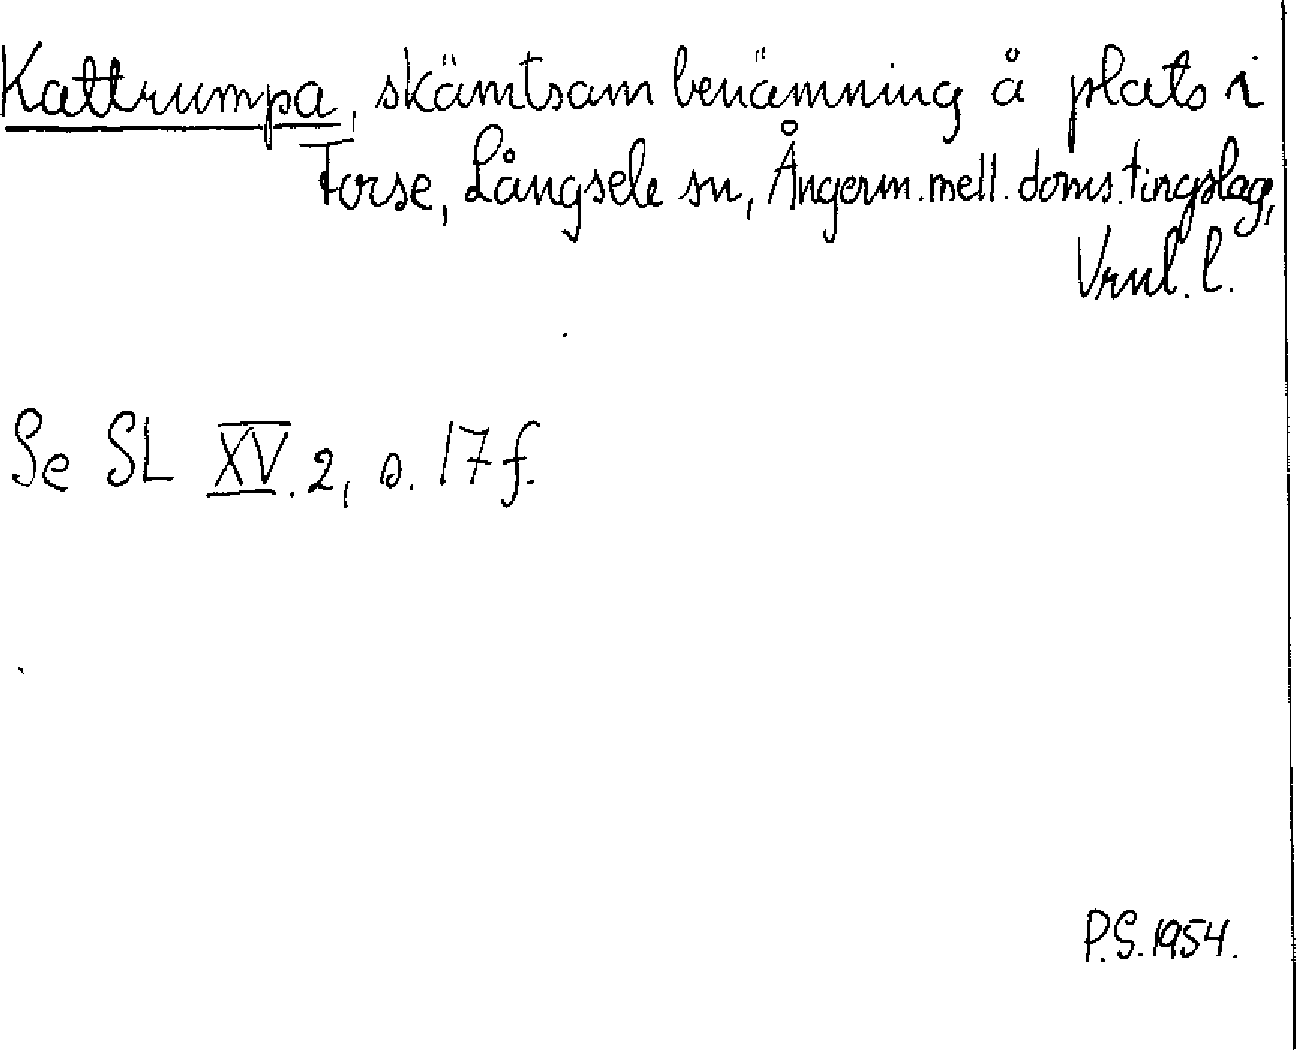 Kattrumpa, skämtsam benämning å plats i
Forse, Långsele sn, Ångerm. mell. doms. tingslag,
Vrnl. l.
Se SL XV. 2, s. 17 f.
P.S. 1954.